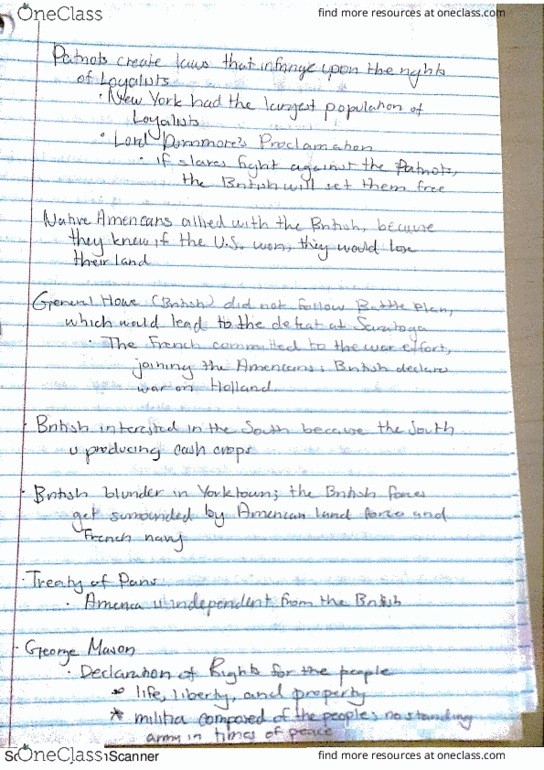 OneClass
find more resources at oneclass.com
Patriots create laws that infringe upon the rights
of Loyalists
· New York had the largest population of
Loyalists
· Lord Dunmore's Proclamation
· if slaves fight against the Patriots,
the British will set them free
Native Americans allied with the British, because
they knew if the U.S. won, they would lose
their land
General Howe (British) did not follow Battle Plan,
which would lead to the defeat at Saratoga
· The French committed to the war effort,
joining the Americans; British declare
war on Holland
British interested in the South because the South
is producing cash crops
· British blunder in Yorktown; the British forces
get surrounded by American land force and
French navy
· Treaty of Paris
· America is independent from the British
· George Mason
· Declaration of Rights for the people
* life, liberty, and property
* militia composed of the people; no standing
army in times of peace
OneClass
Scanner
find more resources at oneclass.com